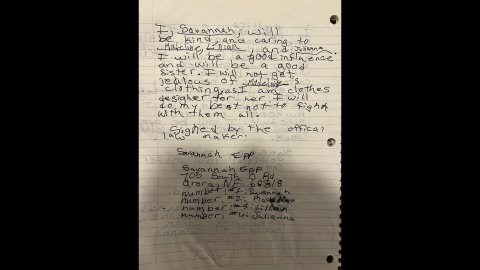 I, Savannah, will
be kind, and caring to
Lillian, and Julianna.
I will be a good influence
and will be a good
sister. I will not get
jealous of 's
clothing, as I am clothes
designer for her. I will
do my best not to fight
with them all.
Signed by the offical
law maker.
Savannah Epp
Savannah Epp
705 South O Rd
Arora, NE 68818
number #1: Savannah
number #2:
number #3: Lillian
number #4: Julianna